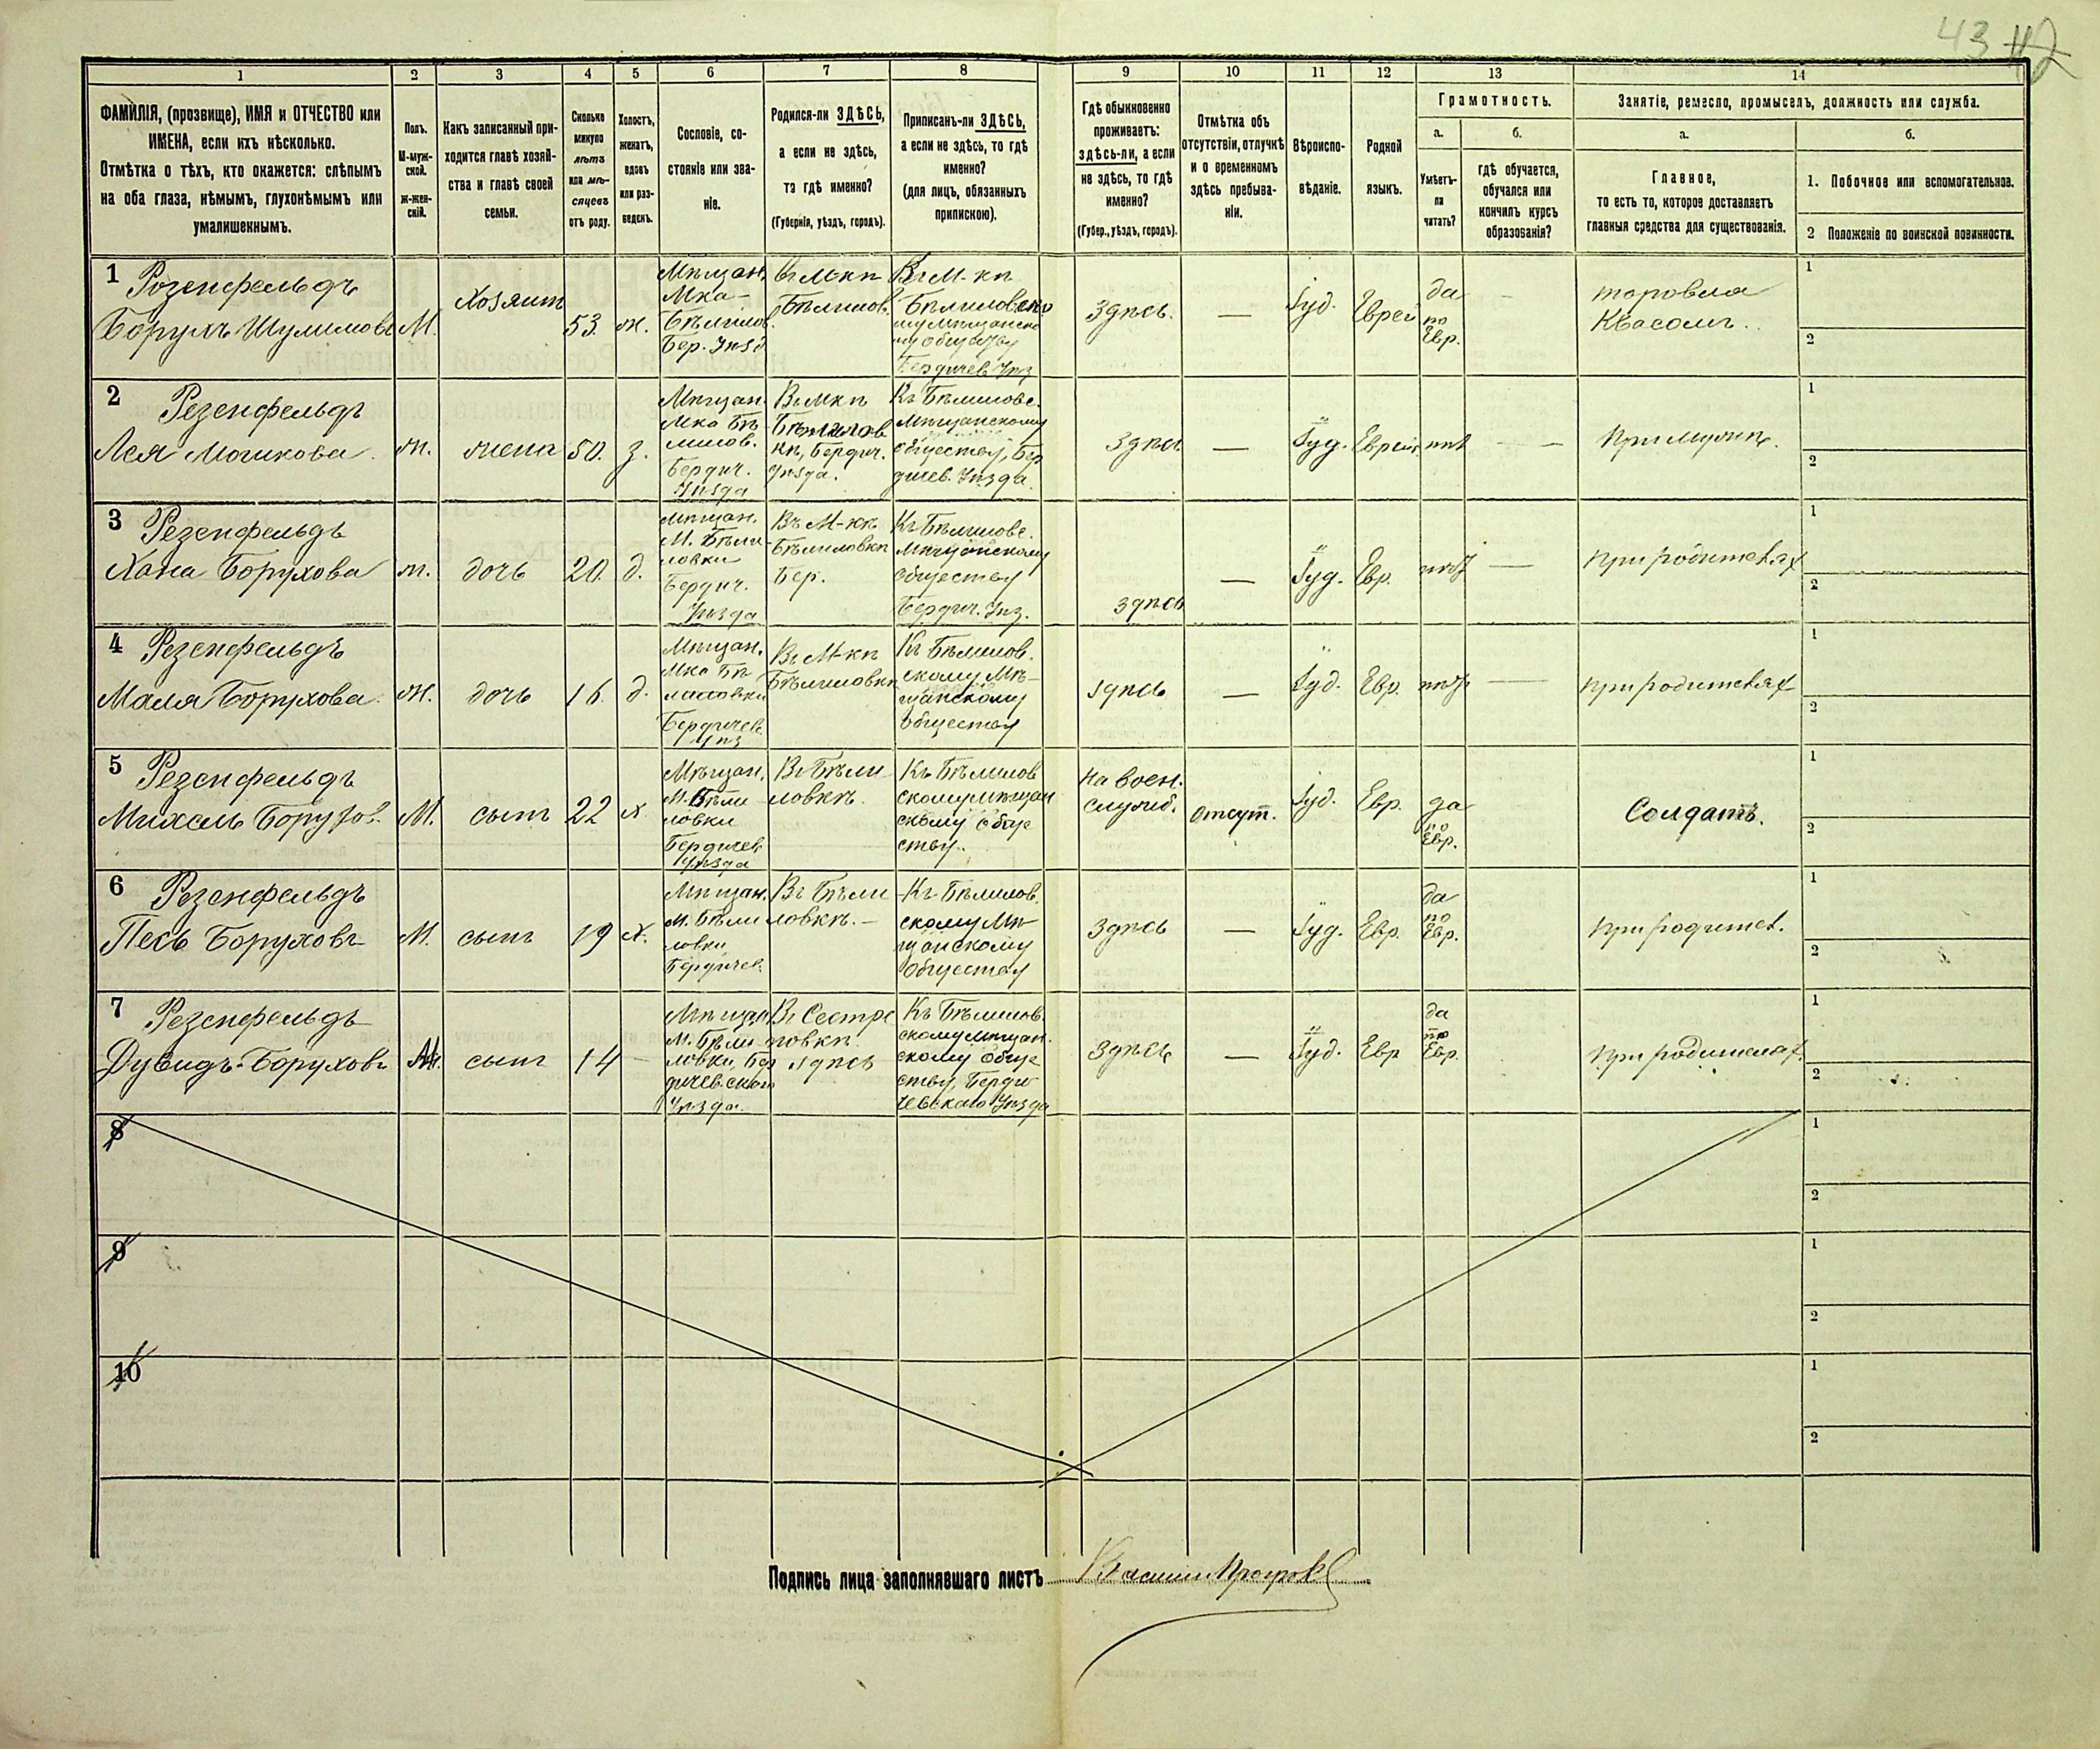 43 42
1 2 3 4 5 6 7 8 9 10 11 12 13 14
ФАМИЛІЯ, (прозвище), ИМЯ и ОТЧЕСТВО или
ИМЕНА, если ихъ нѣсколько.
Отмѣтка о тѣхъ, кто окажется: слѣпымъ
на оба глаза, нѣмымъ, глухонѣмымъ или
умалишеннымъ.
Полъ.
М-муж-
ской.
ж-жен-
скій.
Какъ записанный при-
ходится главѣ хозяй-
ства и главѣ своей
семьи.
Сколько
минуло
лѣтъ
или мѣ-
сяцевъ
отъ роду.
Холостъ,
женатъ,
вдовъ
или раз-
веденъ.
Сословіе, со-
стояніе или зва-
ніе.
Родился-ли ЗДѢСЬ,
а если не здѣсь,
то гдѣ именно?
(Губернія, уѣздъ, городъ).
Приписанъ-ли ЗДѢСЬ,
а если не здѣсь, то гдѣ
именно?
(для лицъ, обязанныхъ
припискою).
Гдѣ обыкновенно
проживаетъ:
здѣсь-ли, а если
не здѣсь, то гдѣ
именно?
(Губер., уѣздъ, городъ).
Отмѣтка объ
отсутствіи, отлучкѣ
и о временномъ
здѣсь пребыва-
ніи.
Вѣроиспо-
вѣданіе.
Родной
языкъ.
Грамотность.
а.
Умѣетъ-
ли
читать?
б.
гдѣ обучается,
обучался или
кончилъ курсъ
образованія?
Занятіе, ремесло, промыселъ, должность или служба.
а.
Главное,
то есть то, которое доставляетъ
главныя средства для существованія.
б.
1. Побочное или вспомогательное.
2 Положеніе по воинской повинности.
1 Розенфельдъ
Борухъ Шулимовъ
М.
Хозяинъ
53.
ж.
Мѣщан.
Мка-
Бѣлилов.
Бер. Уѣзд
Въ М-кѣ
Бѣлилов.
Въ М-кѣ
Бѣлиловско
му мѣщанско
му обществу
Бердичев Уѣз
Здѣсь.
—
Іуд.
Еврей
да
по
Евр.
—
торовля
Квасомъ.
1
2
2 Резенфельдъ
Лея Мошкова.
ж.
жена
50.
з.
Мѣщан.
Мка Бѣ
лилов.
Бердич.
Уѣзда
Въ Мкѣ
Бѣлилов
кѣ, Бердич.
Уѣзда.
Къ Бѣлиловс.
Мѣщанскому
обществу, Бер
дичев. Уѣзда.
Здѣсь
—
Іуд.
Еврей
нѣт
—
При мужѣ.
1
2
3 Резенфельдъ
Хана Борухова
ж.
дочь
20.
д.
мѣщан.
М. Бѣли-
ловки
Бердич.
Уѣзда
Въ М-кѣ
Бѣлиловкѣ
Бер.
Къ Бѣлиловс.
Мѣщанскому
обществу
Бердич. Уѣз.
здѣсь
—
Іуд.
Евр.
нѣт
—
При родителях
1
2
4 Резенфельдъ
Маля Борухова.
ж.
дочь
16.
д.
Мѣщан.
Мка Бѣ
лиловки
Бердичев.
Уѣз
Въ М-кѣ
Бѣлиловкѣ
Къ Бѣлилов.
скому Мѣ-
щанскому
обществу
здѣсь
—
Іуд.
Евр.
нѣт
—
при родителях
1
2
5 Резенфельдъ
Михель Борухов.
М.
сынъ
22
х.
Мѣщан.
М. Бѣли
ловки
Бердичев
Уѣзда
Въ Бѣли
ловкѣ.
Къ Бѣлилов
скому мѣщан
скому обще
ству.
На воен.
служб.
отсут.
Іуд.
Евр.
да
по
Евр.
Солдатъ.
1
2
6 Резенфельдъ
Песь Боруховъ
М.
сынъ
19
х.
Мѣщан.
М. Бѣли
ловки
Бердичев.
Въ Бѣли
ловкѣ. —
Къ Бѣлилов.
скому Мѣ
щанскому
обществу
Здѣсь
—
Іуд.
Евр.
да
по
Евр.
При родител.
1
2
7 Резенфельдъ
Дувидъ Боруховъ
М.
сынъ
14
—
Мѣщан.
М. Бѣли
ловки, Бер
дичевскаго
Уѣзда.
здѣсь
Къ Бѣлилов.
скому мѣщан.
скому обще
ству, Берди
чевскаго Уѣзда
Здѣсь
—
Іуд.
Евр
да
по
Евр.
При родителях.
1
2
8
1
2
9
1
2
10
1
2
Подпись лица заполнявшаго листъ